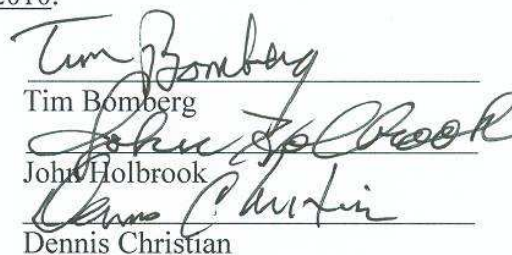 2010.
Tim Bomberg
Tim Bomberg
John Holbrook
John Holbrook
Dennis Christian
Dennis Christian